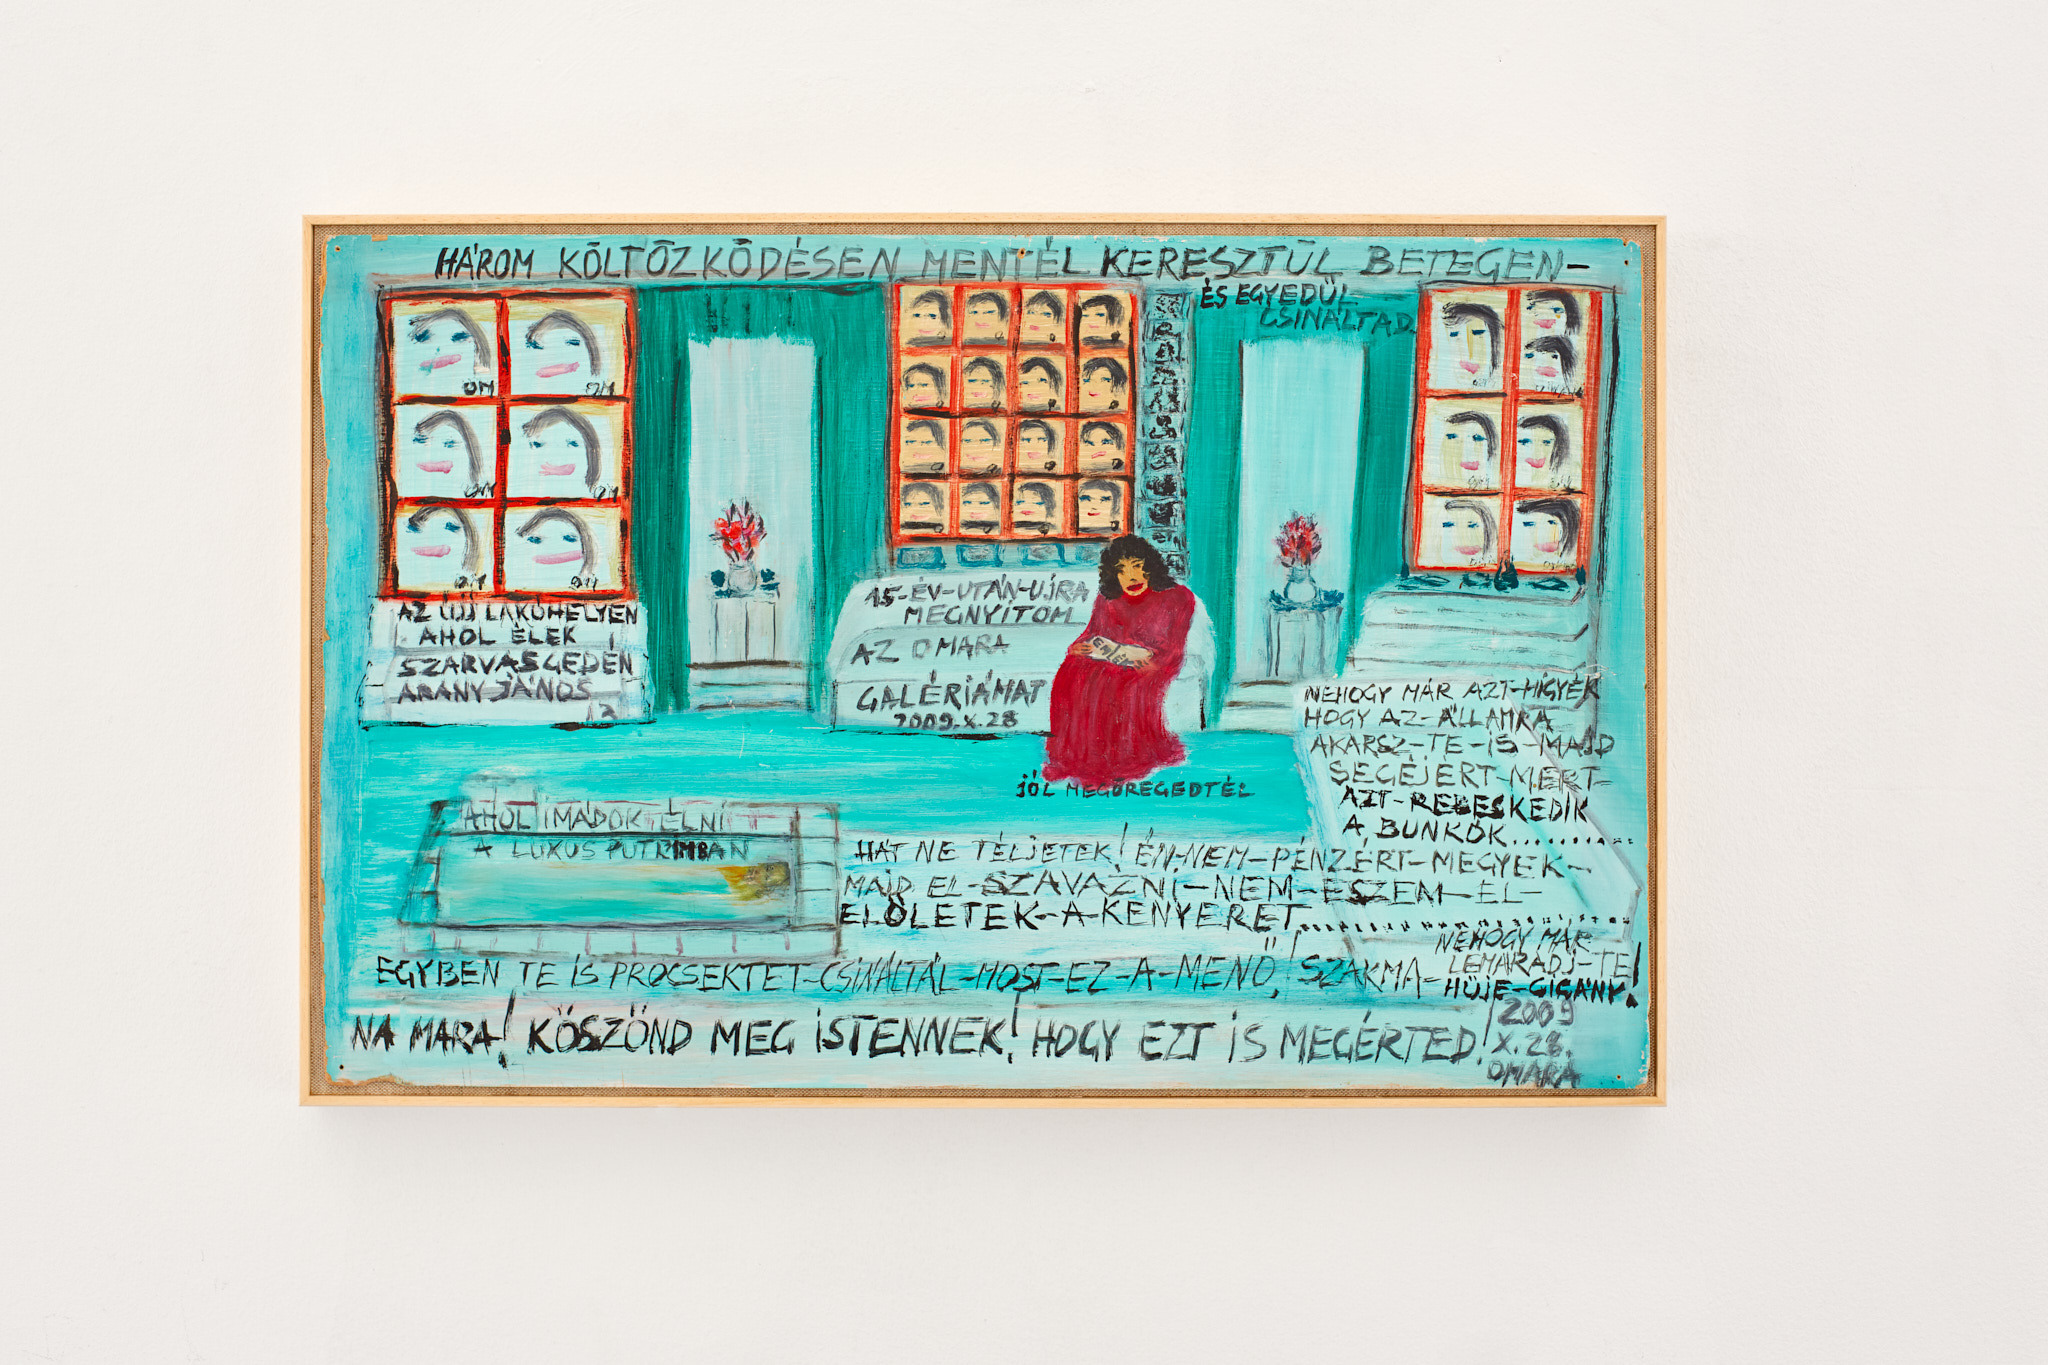 HÁROM KÖLTÖZKÖDÉSEN MENTÉL KERESZTÜL BETEGEN-
ÉS EGYEDÜL
CSINÁLTAD.
AZ ÚJ LAKÓHELYEN
AHOL ÉLEK
SZARVASGEDÉN
ARANY JÁNOS
13
15-ÉV-UTÁN-UJRA
MEGNYITOM
AZ OMARA
GALÉRIÁMAT
2009.X.28
JÓL MEGÖREGEDTÉL
NEHOGY MÁR AZT-HIGYÉK
HOGY AZ-ÁLLAMRA
AKARSZ-TE-IS-MAJD
SEGÉJÉRT-MERT-
AZT-REBESKEDIK
A BUNKÓK..........
AHOL IMÁDOK ÉLNI
A LUXUS PUTRIMBAN
HÁT NE FÉLJETEK! ÉN-NEM-PÉNZÉRT-MEGYEK-
MAJD EL-SZAVAZNI-NEM-ESZEM-EL-
ELÖLETEK-A-KENYERET..........
EGYBEN TE IS PROCSEKTET-CSINÁLTÁL-MOST-EZ-A-MENŐ! SZAKMA-
NEHOGY MÁR
LEMARADJ-TE
HÜJE-CIGÁNY!
NA MARA! KÖSZÖND MEG ISTENNEK! HOGY EZT IS MEGÉRTED!
2009
X.28.
OMARA